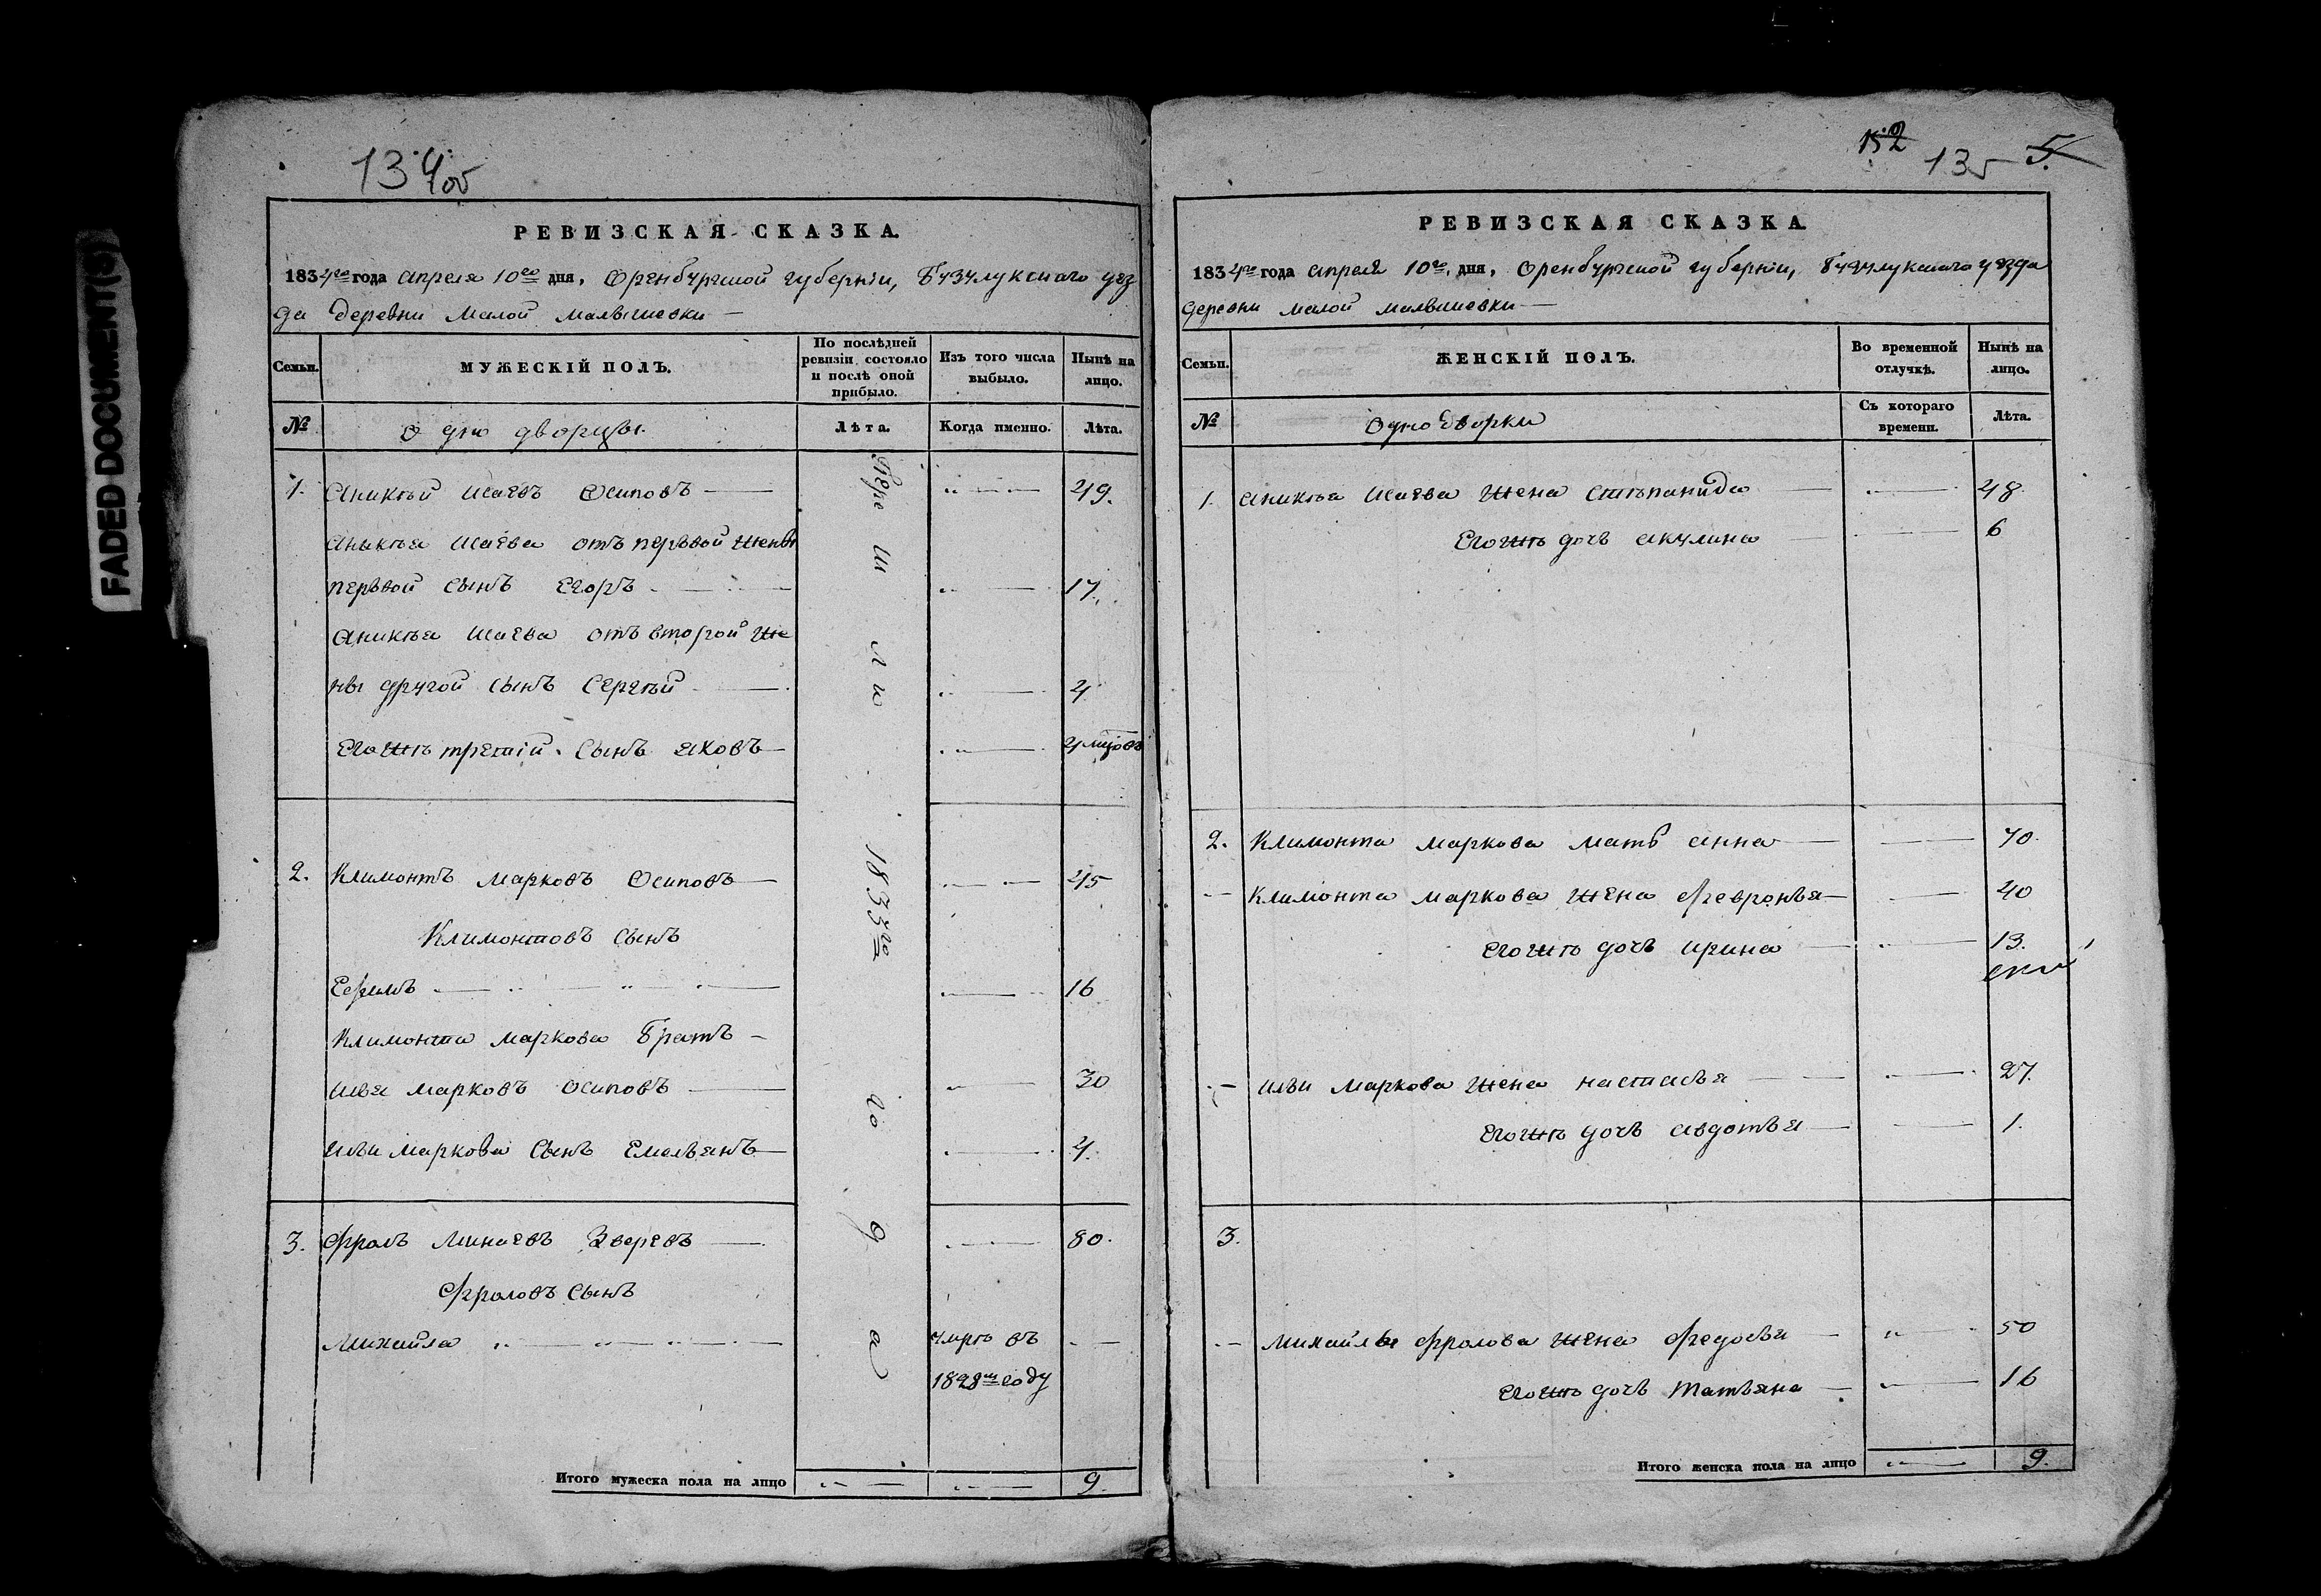 FADED DOCUMENT(S)
134об
РЕВИЗСКАЯ СКАЗКА.
1834го года апреля 10го дня, Оренбургской губерніи, Бузулукскаго уез
да деревни Малой Малышевки —
Семьи.
МУЖЕСКІЙ ПОЛЪ.
По послѣдней ревизіи состояло и послѣ оной прибыло.
Изъ того числа выбыло.
Нынѣ на лицо.
№
однодворцы.
Лѣта.
Когда именно.
Лѣта.
Перешли 1833го года
1. Аникѣй Исаевъ Осиповъ — 49.
Аникѣя Исаева отъ перьвой жены
перьвой сынъ Егоръ — 17.
Аникѣя Исаева отъ второй же
ны другой сынъ Сергѣй — 4
Егожъ третій сынъ Яковъ — 4 мцовъ
2. Климонтъ Марковъ Осиповъ — 45
Климонтовъ сынъ
Ефимъ — 16
Климонта Маркова братъ —
Илья Марковъ Осиповъ — 30
Ильи Маркова сынъ Емельянъ — 4.
3. Фролъ Минаевъ Зверевъ — 80.
Фроловъ сынъ
Михайла — умре въ —
1828м году
Итого мужеска пола на лицо 9.
152 135 5.
РЕВИЗСКАЯ СКАЗКА.
1834го года апреля 10го дня, Оренбургской губерніи, Бузулукскаго уезда
деревни Малой Малышевки —
Семьи.
ЖЕНСКІЙ ПОЛЪ.
Во временной отлучкѣ.
Нынѣ на лицо.
№
Однодворки
Съ котораго времени.
Лѣта.
1. Аникѣя Исаева жена Стѣпанида — 48.
Егожъ дочь Акулина — 6
2. Климонта Маркова мать Анна — 70.
Климонта Маркова жена Февронья — 40
Егожъ дочь Ирина — 13.
Ильи Маркова жена Настасья — 27.
Егожъ дочь Авдотья — 1.
3.
Михайлы Фролова жена Федосья — 50
Егожъ дочь Татьяна — 16
Итого женска пола на лицо 9.